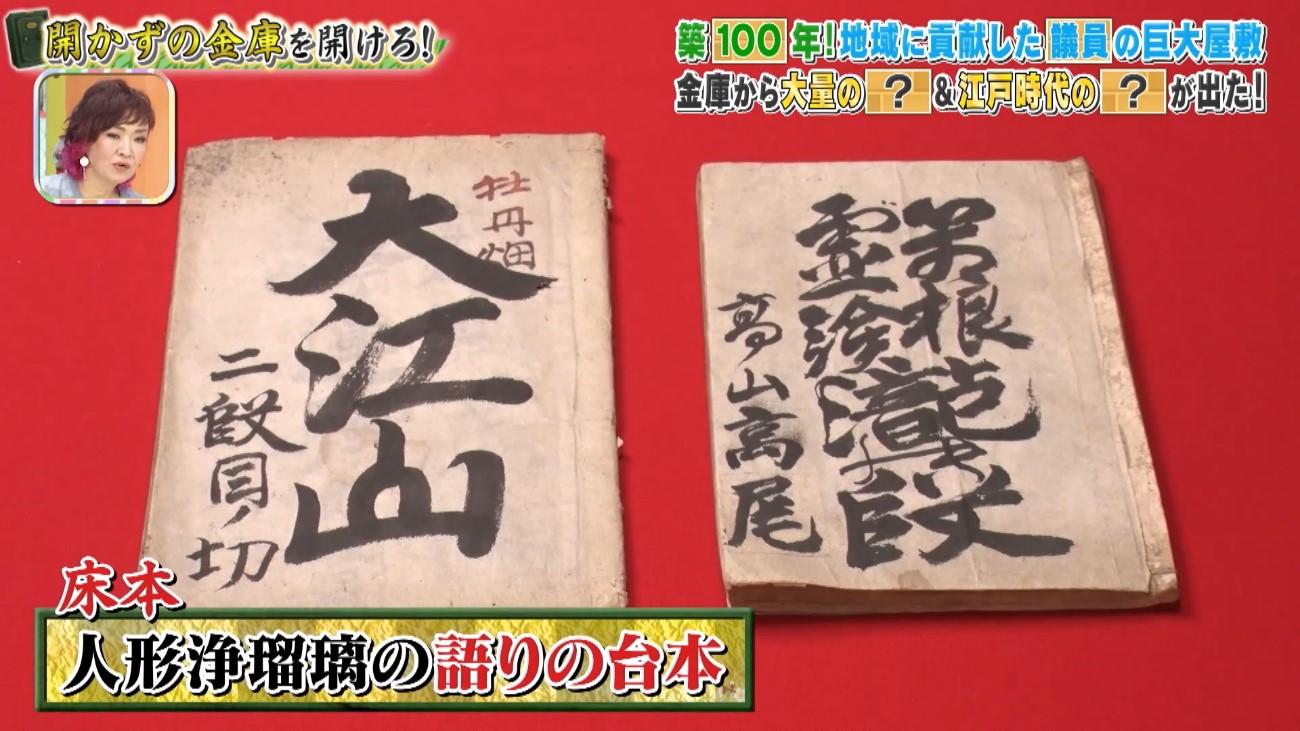 開かずの金庫を開けろ!
築100年!地域に貢献した議員の巨大屋敷
金庫から大量の?&江戸時代の?が出た!
牡丹畑
大江山
二段目ノ切
箱根
霊験
瀧
段
高山高尾
床本
人形浄瑠璃の語りの台本